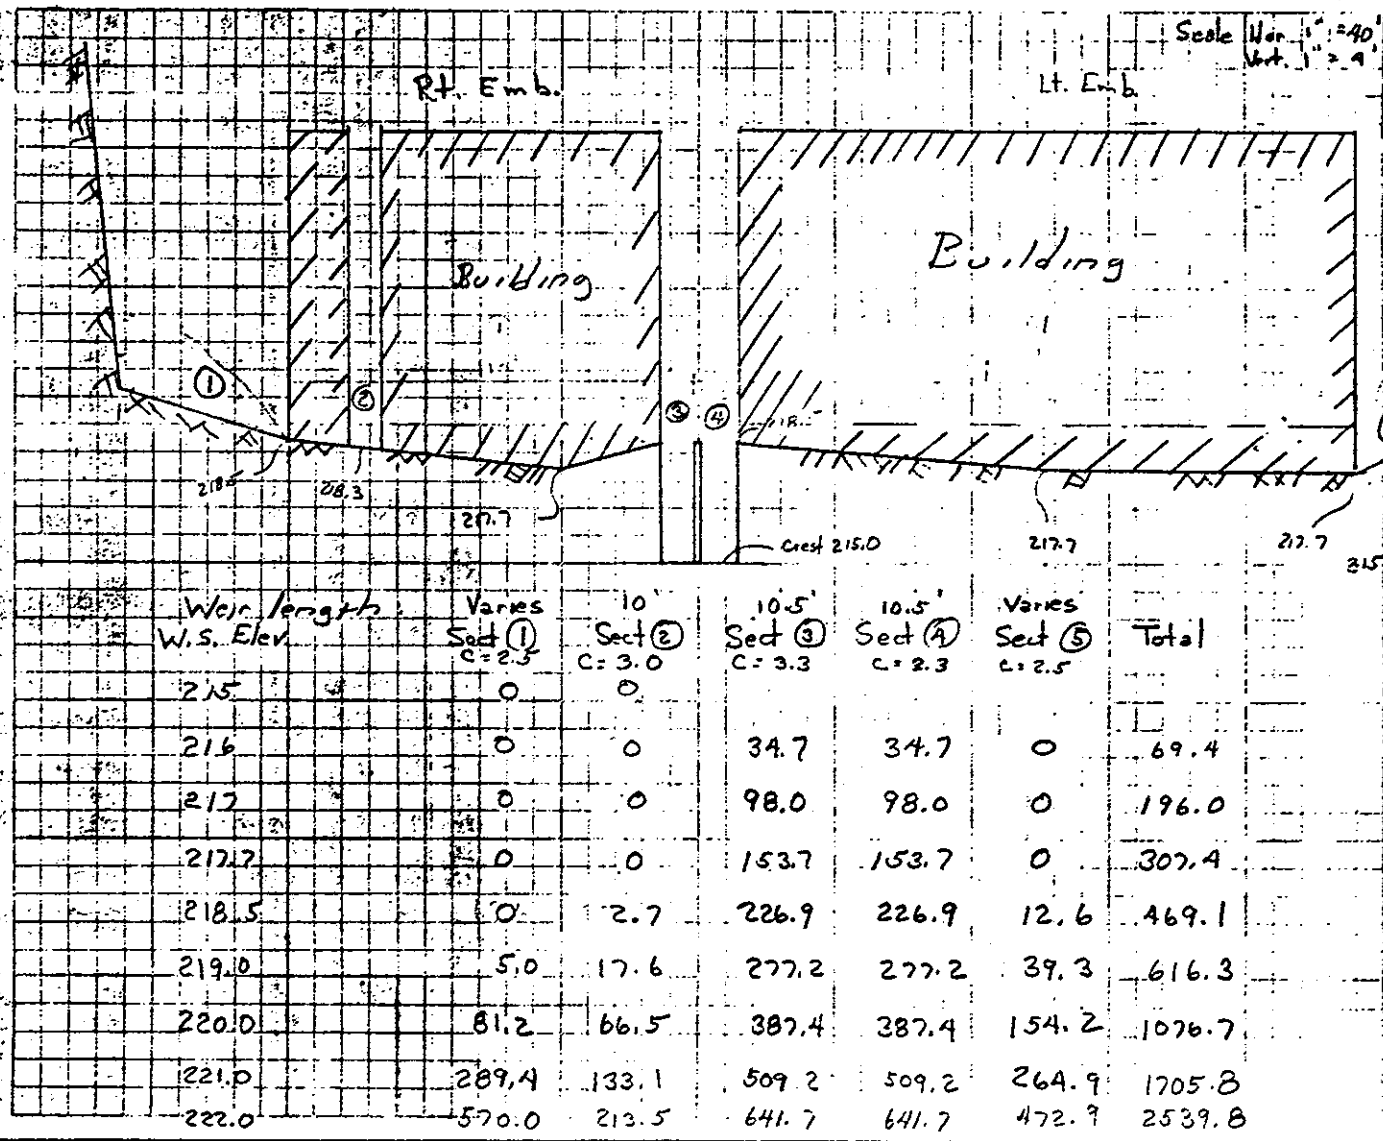 Scale Hor. 1" = 40'
Vert. 1" = 4'
Rt. Emb.
Lt. Emb.
Building
Building
①
②
③ ④
218.5
218.3
217.7
Crest 215.0
217.7
217.7
315
Weir length Varies 10' 10.5' 10.5' Varies
W.S. Elev. Sect ① Sect ② Sect ③ Sect ④ Sect ⑤ Total
C=2.5 C=3.0 C=3.3 C=3.3 C=2.5
215 0 0
216 0 0 34.7 34.7 0 69.4
217 0 0 98.0 98.0 0 196.0
217.7 0 0 153.7 153.7 0 307.4
218.5 0 2.7 226.9 226.9 12.6 469.1
219.0 5.0 17.6 277.2 277.2 39.3 616.3
220.0 81.2 66.5 387.4 387.4 154.2 1076.7
221.0 289.4 133.1 509.2 509.2 264.9 1705.8
222.0 570.0 213.5 641.7 641.7 472.9 2539.8